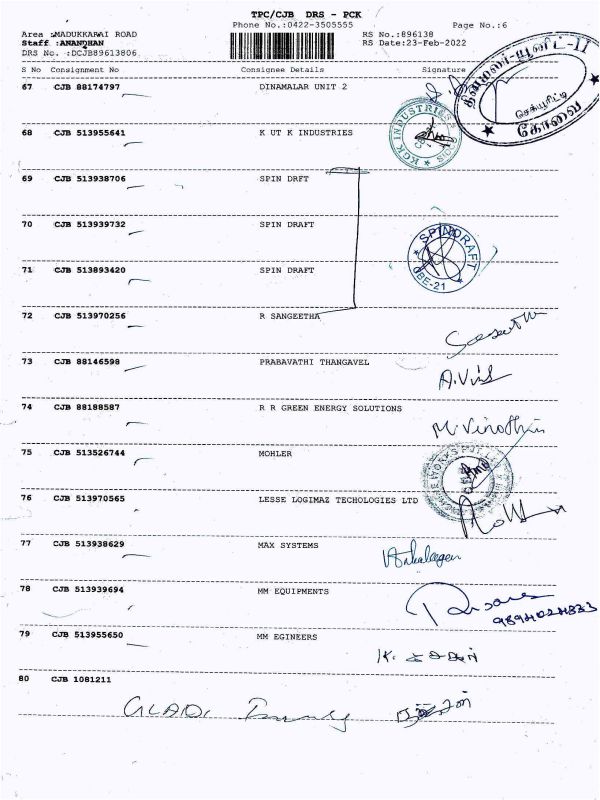 TPC/CJB DRS - PCK
Phone No.:0422-3505555 Page No.:6
Area :MADUKKARAI ROAD RS No.:896138
Staff :ANANDHAN RS Date:23-Feb-2022
DRS No. :DCJB89613806
S No Consignment No Consignee Details Signature
67 CJB 88174797 DINAMALAR UNIT 2
தினமலர்-யூனிட்-II
செக்யூரிட்டி
கோவை
68 CJB 513955641 K UT K INDUSTRIES
KGK INDUSTRIES
69 CJB 513938706 SPIN DRFT
70 CJB 513939732 SPIN DRAFT
SPINDRAFT
CBE-21
71 CJB 513893420 SPIN DRAFT
72 CJB 513970256 R SANGEETHA
73 CJB 88146598 PRABAVATHI THANGAVEL
74 CJB 88188587 R R GREEN ENERGY SOLUTIONS
75 CJB 513526744 MOHLER
76 CJB 513970565 LESSE LOGIMAZ TECHOLOGIES LTD
77 CJB 513938629 MAX SYSTEMS
78 CJB 513939694 MM EQUIPMENTS
79 CJB 513955650 MM EGINEERS
80 CJB 1081211